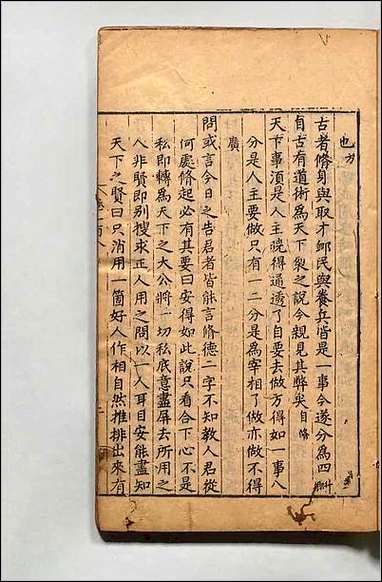 也方
古者脩身與取才卹民與養兵皆是一事今遂分為四升卿
自古有道術為天下裂之說今親見其弊矣自脩
天下事須是人主曉得通透了自要去做方得如一事八
分是人主要做只有一二分是為宰相了做亦做不得
廣
問或言今日之告君者皆能言脩德二字不知教人君從
何處脩起必有其要曰安得如此說只看合下心不是
私即轉為天下之大公將一切私底意盡屏去所用之
人非賢即別搜求正人用之問以一人耳目安能盡知
天下之賢曰只消用一箇好人作相自然推排出來有
卷一百八